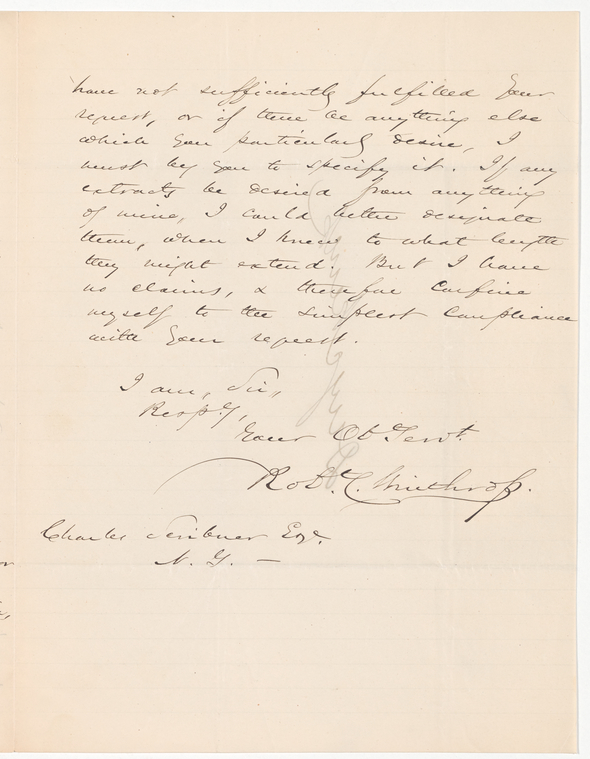 have not sufficiently fulfilled your
request, or if there be anything else
which you particularly desire, I
must beg you to specify it. If any
extracts be desired from anything
of mine, I could better designate
them, when I knew to what length
they might extend. But I have
no claims, & therefore confine
myself to the simplest compliance
with your request.
I am, Sir,
Respy,
Your Ob. Servt.
Robt. C. Winthrop.
Charles Scribner Esq.
N. Y. —